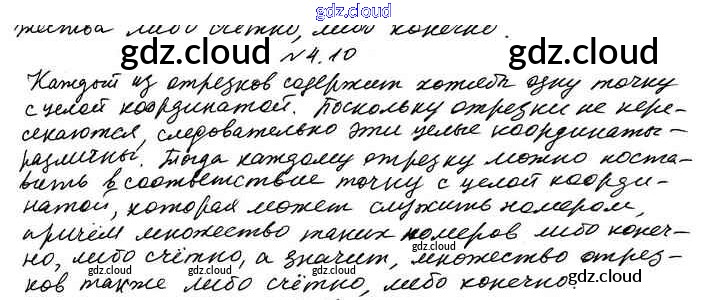 gdz.cloud
жества либо счётно, либо конечно.
gdz.cloud gdz.cloud
№4.10
Каждый из отрезков содержит хотя бы одну точку
с целой координатой. Поскольку отрезки не пере-
gdz.cloud gdz.cloud
секаются, следовательно эти целые координаты –
различны. Тогда каждому отрезку можно поста-
вить в соответствие точку с целой коорди-
gdz.cloud gdz.cloud
натой, которая может служить номером,
причём множество таких номеров либо конеч-
но, либо счётно, а значит, множество отрез-
gdz.cloud gdz.cloud gdz.cloud
ков также либо счётно, либо конечно.
gdz.cloud gdz.cloud